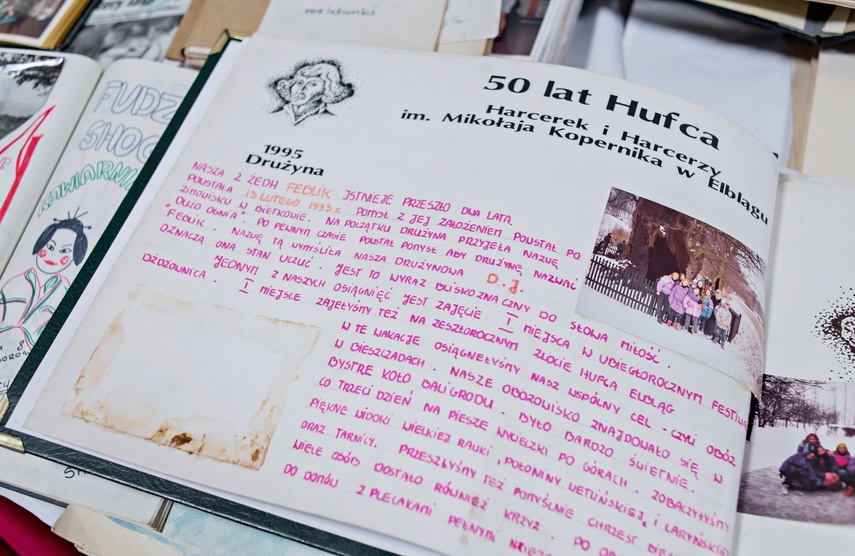 meldunki
FUDZI
SHOG
KAWIARNIA
50 lat Hufca
Harcerek i Harcerzy
im. Mikołaja Kopernika w Elblągu
1995
Drużyna
NASZA 2 ŻEDH FEBLIK ISTNIEJE PRZESZŁO DWA LATA,
POWSTAŁA 13 LUTEGO 1993 R. POMYSŁ Z JEJ ZAŁOŻENIEM POWSTAŁ PO
ZIMOWISKU W BIETKOWIE. NA POCZĄTKU DRUŻYNA PRZYJĘŁA NAZWĘ
"DUŻO OGNIA". PO PEWNYM CZASIE POWSTAŁ POMYSŁ ABY DRUŻYNĘ NAZWAĆ
FEBLIK. NAZWĘ TĄ WYMYŚLIŁA NASZA DRUŻYNOWA D.J.
OZNACZA ONA STAN UCZUĆ. JEST TO WYRAZ BLISKOZNACZNY DO SŁOWA MIŁOŚĆ.
JEDNYM Z NASZYCH OSIĄGNIĘĆ JEST ZAJĘCIE I MIEJSCA W UBIEGŁOROCZNYM FESTIW
I MIEJSCE ZAJĘŁYŚMY TEŻ NA ZESZŁOROCZNYM ZLOCIE HUFCA ELBLĄG
W TE WAKACJE OSIĄGNĘŁYŚMY NASZ WSPÓLNY CEL - CZYLI OBÓZ
W BIESZCZADACH. NASZE OBOZOWISKO ZNAJDOWAŁO SIĘ W
BYSTRE KOŁO BALIGRODU. BYŁO BARDZO ŚWIETNIE.
CO TRZECI DZIEŃ NA PIESZE WYCIECZKI PO GÓRACH. ZOBACZYŁYŚMY
PIĘKNE WIDOKI WIELKIEJ RAWKI, POŁONINY WETLIŃSKIEJ I CARYŃSKIEJ
ORAZ TARNICY. PRZESZŁYŚMY TEŻ POMYŚLNIE CHRZEST
WIELE OSÓB DOSTAŁO RÓWNIEŻ KRZYŻ. PO
DO DOMÓW Z PLECAKAMI PEŁNYMI